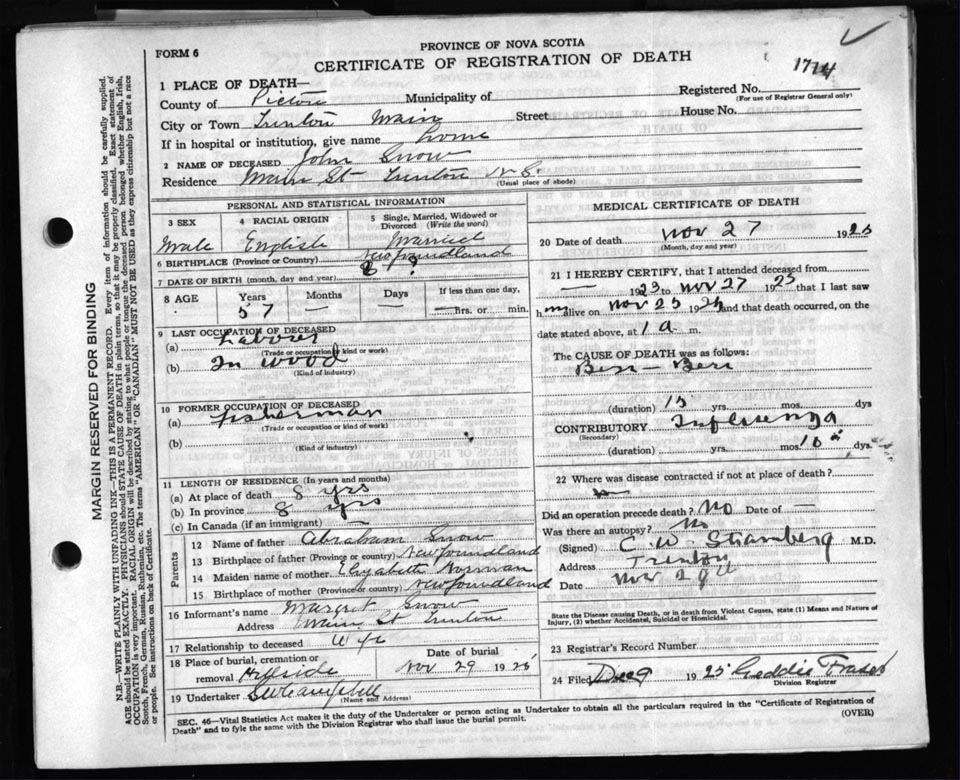 FORM 6
PROVINCE OF NOVA SCOTIA
CERTIFICATE OF REGISTRATION OF DEATH
1774
1 PLACE OF DEATH—
County of Pictou Municipality of
Registered No.
(For use of Registrar General only)
City or Town Trenton Main Street House No.
If in hospital or institution, give name home
2 NAME OF DECEASED John Snow
Residence Main St Trenton N.S.
(Usual place of abode)
PERSONAL AND STATISTICAL INFORMATION
3 SEX 4 RACIAL ORIGIN 5 Single, Married, Widowed or Divorced (Write the word)
Male English Married
6 BIRTHPLACE (Province or Country) Newfoundland
7 DATE OF BIRTH (month, day and year)
8 AGE Years Months Days If less than one day,
57 — — hrs. or min.
9 LAST OCCUPATION OF DECEASED
(a) Laborer
(Trade or occupation or kind or work)
(b) In wood
(Kind of industry)
10 FORMER OCCUPATION OF DECEASED
(a) Fisherman
(Trade or occupation or kind of work)
(b)
(Kind of industry)
11 LENGTH OF RESIDENCE (In years and months)
(a) At place of death 8 yrs
(b) In province 8 yrs
(c) In Canada (if an immigrant) —
Parents
12 Name of father Abraham Snow
13 Birthplace of father (Province or country) Newfoundland
14 Maiden name of mother Elizabeth Norman
15 Birthplace of mother (Province or country) Newfoundland
16 Informant's name Margret Snow
Address Main St Trenton
17 Relationship to deceased Wife
18 Place of burial, cremation or removal Hillside
Date of burial
Nov 29 1925
19 Undertaker Campbell
(Name and Address)
MEDICAL CERTIFICATE OF DEATH
20 Date of death Nov 27 1925
(Month, day and year)
21 I HEREBY CERTIFY, that I attended deceased from
— 1923 to Nov 27 1925 that I last saw
him alive on Nov 25 and that death occurred, on the
date stated above, at 1 a m.
The CAUSE OF DEATH was as follows:
Beri-Beri
(duration) yrs. mos. dys
CONTRIBUTORY Influenza
(Secondary)
(duration) yrs. mos. 10
22 Where was disease contracted if not at place of death?
Did an operation precede death? No Date of —
Was there an autopsy? No
(Signed) C. W. Stramberg M.D.
Address Trenton
Date Nov 29
State the Disease causing Death, or in death from Violent Causes, state (1) Means and Nature of
Injury, (2) whether Accidental, Suicidal or Homicidal.
23 Registrar's Record Number
24 Filed Dec 9 1925 Geddie Fraser
Division Registrar
SEC. 46—Vital Statistics Act makes it the duty of the Undertaker or person acting as Undertaker to obtain all the particulars required in the "Certificate of Registration of
Death" and to fyle the same with the Division Registrar who shall issue the burial permit.
(OVER)
MARGIN RESERVED FOR BINDING
N.B.—WRITE PLAINLY WITH UNFADING INK—THIS IS A PERMANENT RECORD. Every item of information should be carefully supplied.
AGE should be stated EXACTLY. PHYSICIANS should STATE CAUSE OF DEATH in plain terms, so that it may be properly classified. Exact statement of
OCCUPATION is very important. RACIAL ORIGIN will be described by stating to what people or tongue the deceased person belonged whether English, Irish,
Scotch, French, German, Russian, Ruthenian, etc. The terms "AMERICAN" OR "CANADIAN" MUST NOT BE USED as they express citizenship but not a race
or people. See instructions on back of Certificate.